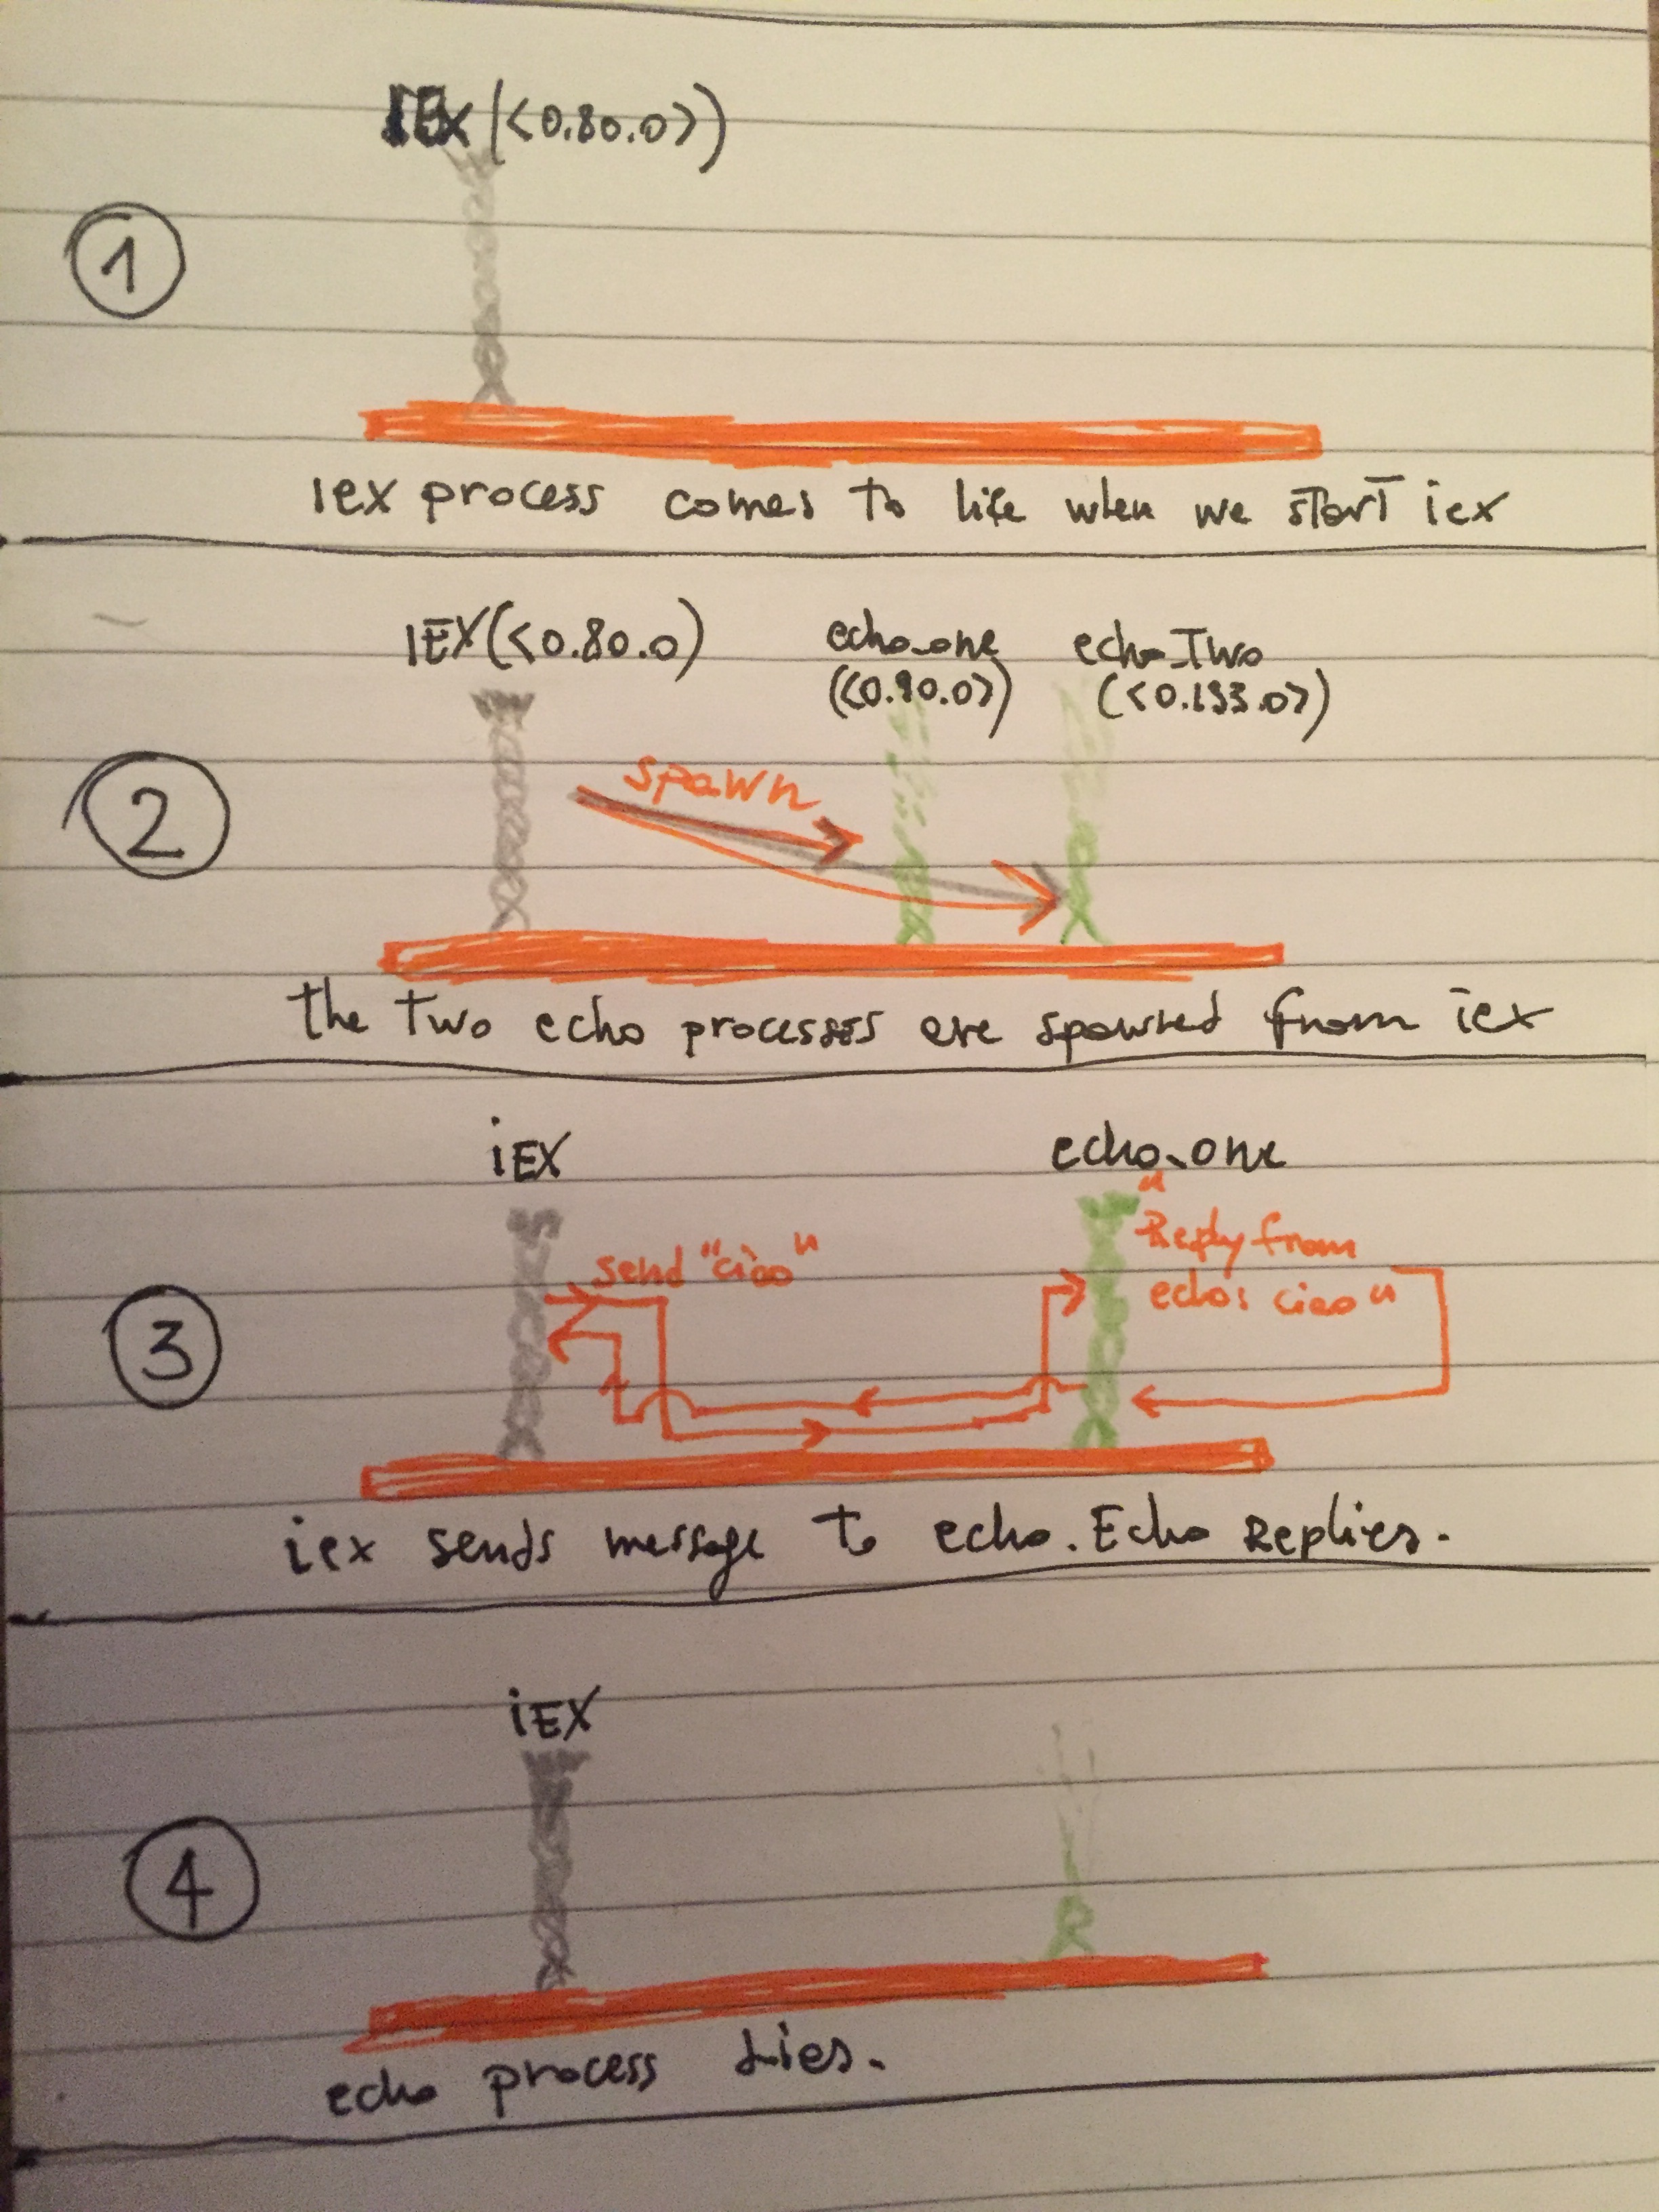 IEx (<0.80.0>)
1
iex process comes to life when we start iex
IEX(<0.80.0)
echo_one
echo_Two
(<0.90.0>)
(<0.133.0>)
spawn
2
the two echo processes are spawned from iex
iEX
echo_one
send "ciao"
"
Reply from
echo: ciao"
3
iex sends message to echo. Echo Replies.
iEX
4
echo process dies.